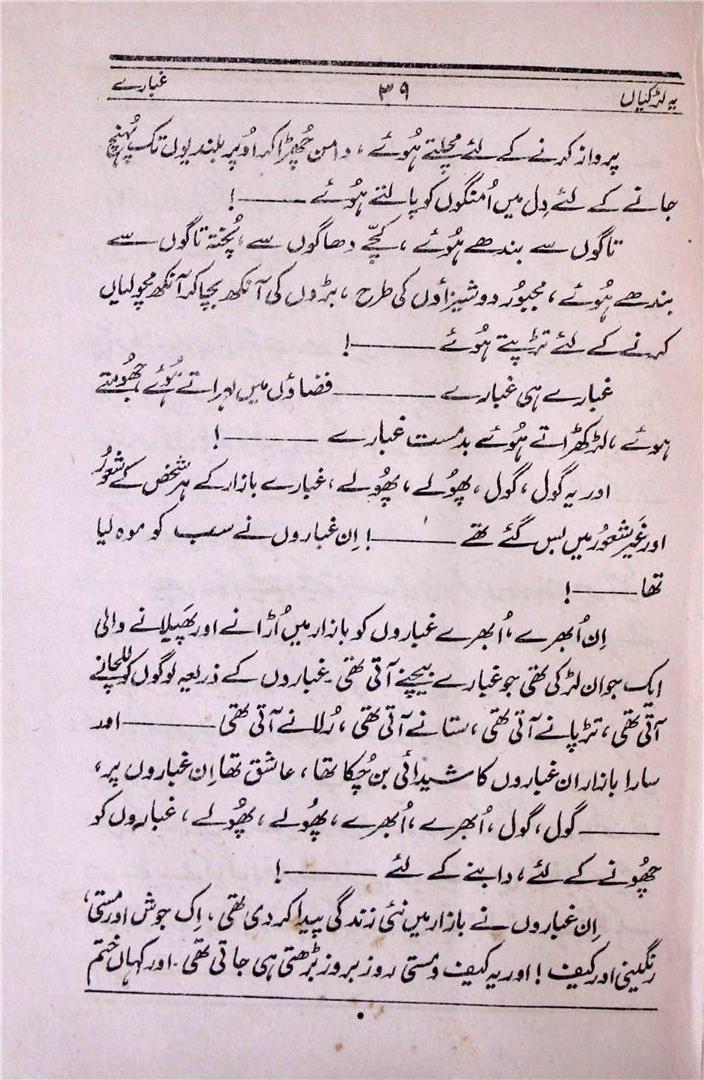 یہ لڑکیاں ۳۹ غبارے
پرواز کرنے کے لئے مچلتے ہُوئے ، دامن چُھڑا کر اُوپر بلندیوں تک پہُنچ
جانے کے لئے دِل میں اُمنگوں کو پالتے ہُوئے ——— !
تاگوں سے بندھے ہُوئے ، کچّے دھاگوں سے ، پُختہ تاگوں سے
بندھے ہُوئے ، مجبُور دوشیزاؤں کی طرح ، بڑوں کی آنکھ بچا کر آنکھ مچولیاں
کرنے کے لئے تڑپتے ہُوئے ——— !
غبارے ہی غبارے ——— فضاؤں میں لہراتے ہُوئے جھُومتے
ہوئے ، لڑکھڑاتے ہُوئے بدمست غبارے ——— !
اور یہ گول ، گول ، پھُولے ، پھُولے ، غبارے بازار کے ہر شخص کے شعُور
اور غیر شعُور میں بس گئے تھے ——— ! اِن غباروں نے سب کو موہ لیا
تھا ——— !
اِن اُبھرے ، اُبھرے غباروں کو بازار میں اُڑانے اور پھَیلانے والی
ایک جوان لڑکی تھی جو غبارے بیچنے آتی تھی۔ غباروں کے ذریعہ لوگوں کو للچانے
آتی تھی ، تڑپانے آتی تھی ، ستانے آتی تھی ، رُلانے آتی تھی ——— اور
سارا بازار ان غباروں کا شیدائی بن چُکا تھا ، عاشق تھا اِن غباروں پر ،
——— گول ، گول ، اُبھرے ، اُبھرے ، پھُولے ، پھُولے ، غباروں کو
چھُونے کے لئے ، دابنے کے لئے ——— !
اِن غباروں نے بازار میں نئی زندگی پیدا کر دی تھی ، اِک جوش اور مستی ،
رنگینی اور کیف ! اور یہ کیف و مستی روز بروز بڑھتی ہی جاتی تھی ۔ اور کہاں ختم